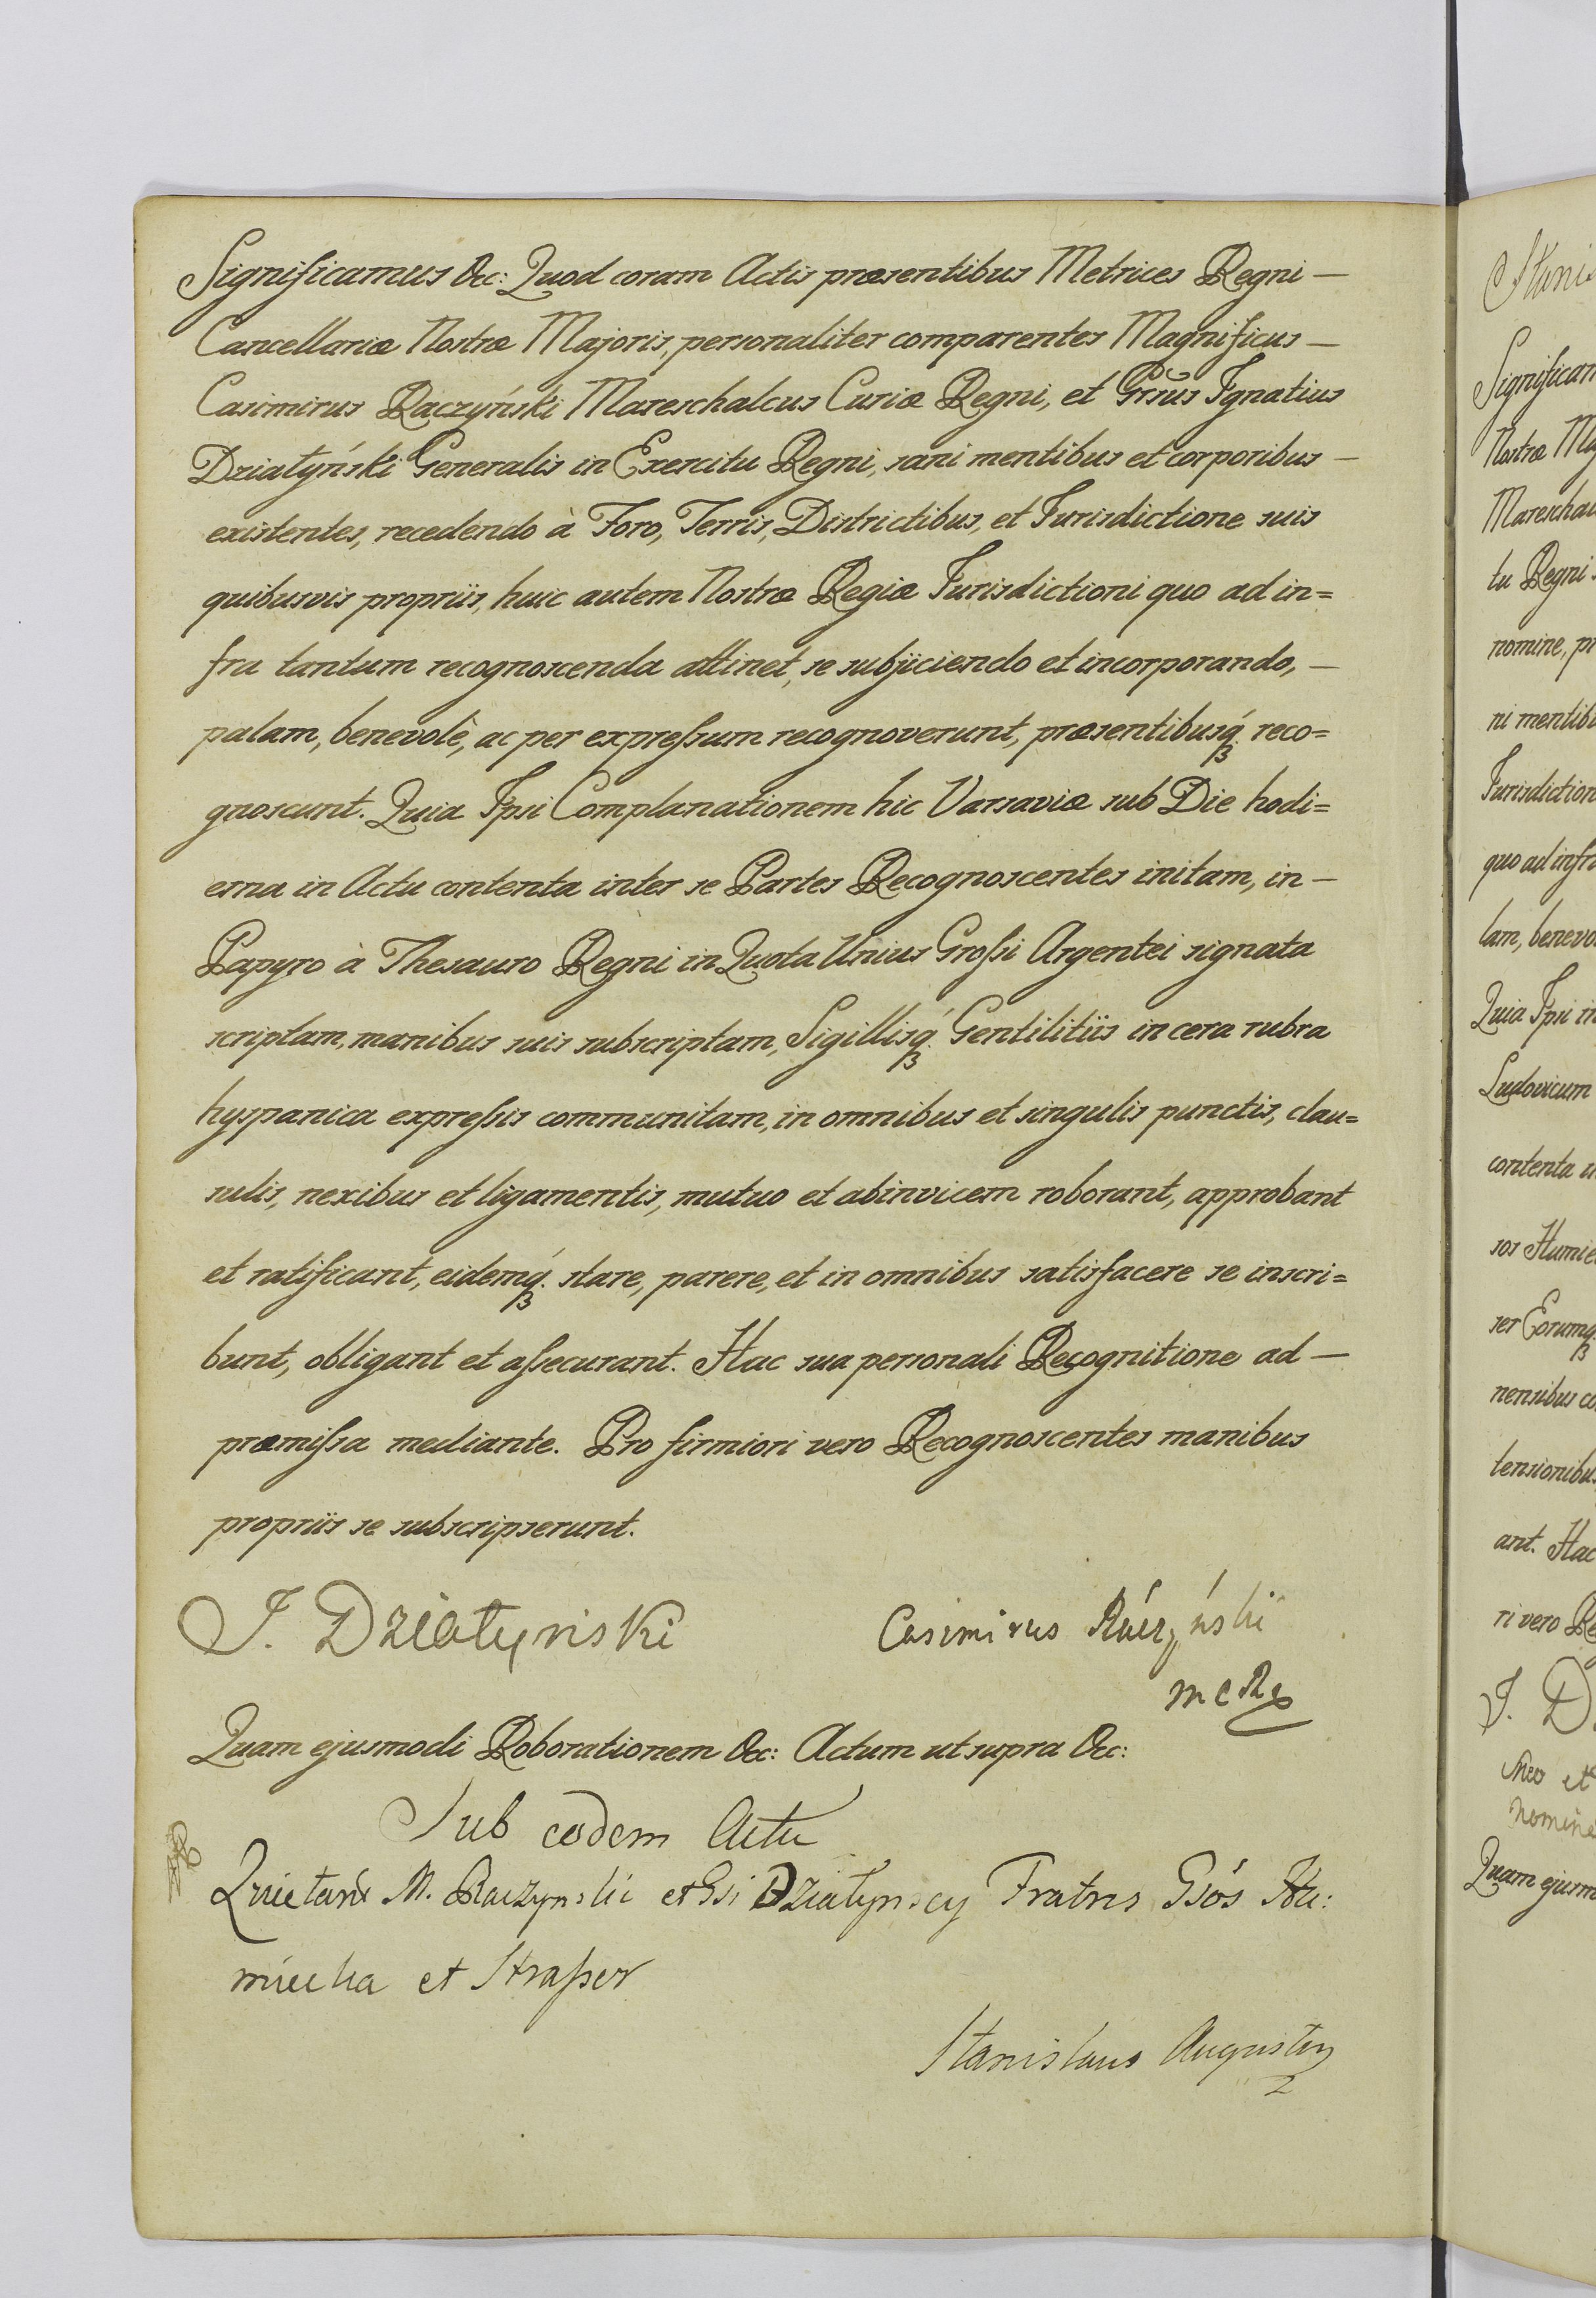 Significamus &c: Quod coram Actis præsentibus Metrices Regni —
Cancellariæ Nostræ Majoris, personaliter comparentes Magnificus —
Casimirus Raczyński Mareschalcus Curiæ Regni, et Grsus Ignatius
Działyński Generalis in Exercitu Regni, sani mentibus et corporibus —
existentes, recedendo à Foro, Terris, Districtibus, et Jurisdictione suis
quibusvis propriis, huic autem Nostræ Regiæ Jurisdictioni quo ad in=
fra tantum recognoscenda attinet, se subjiciendo et incorporando, —
palam, benevolè, ac per expressum recognoverunt, præsentibusq́ʒ reco=
gnoscunt. Quia Ipsi Complanationem hic Varsaviæ sub Die hodi=
erna in Actu contenta inter se Partes Recognoscentes initam, in —
Papyro à Thesauro Regni in Quota Unius Grossi Argentei signata
scriptam, manibus suis subscriptam, Sigillisq́ʒ Gentilitiis in cera rubra
hyspanica expressis communitam, in omnibus et singulis punctis, clau=
sulis, nexibus et ligamentis, mutuo et abinvicem roborant, approbant
et ratificant, eidemq́ʒ stare, parere, et in omnibus satisfacere se inscri=
bunt, obligant et assecurant. Hac sua personali Recognitione ad —
præmissa mediante. Pro firmiori vero Recognoscentes manibus
propriis se subscripserunt.
J. Działynski
Casimirus Raczyński
MCR
Quam ejusmodi Roborationem &c: Actum ut supra &c:
Sub eodem Actu
M. Raczynski et Gsi Działynscy Fratres Gsós Hu:
miecka et Strasser
Stanislaus Augustus
Stanis
Significam
Nostræ Maj
Mareschal
tu Regni
nomine, pr
ni mentibu
Jurisdiction
quo ad infra
lam, benevo
Quia Ipsi in
Ludovicum
contenta in
sos Humie
ser Eorumq
nensibus co
tensionibus
ant. Hac
ri vero Re
J. D
Meo et
nomine
Quam ejusm